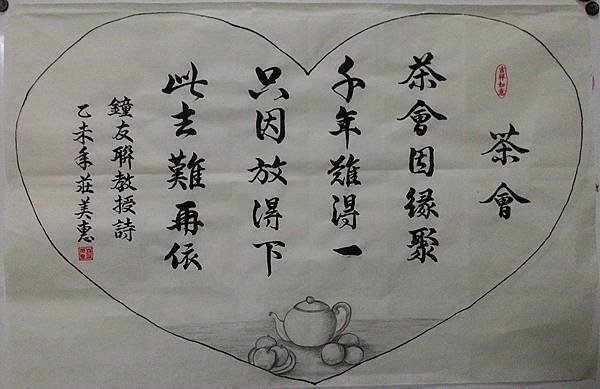 吉祥如意
茶會
茶會因緣聚
千年難得一
只因放得下
此去難再依
鐘友聯教授詩
乙未年莊美惠